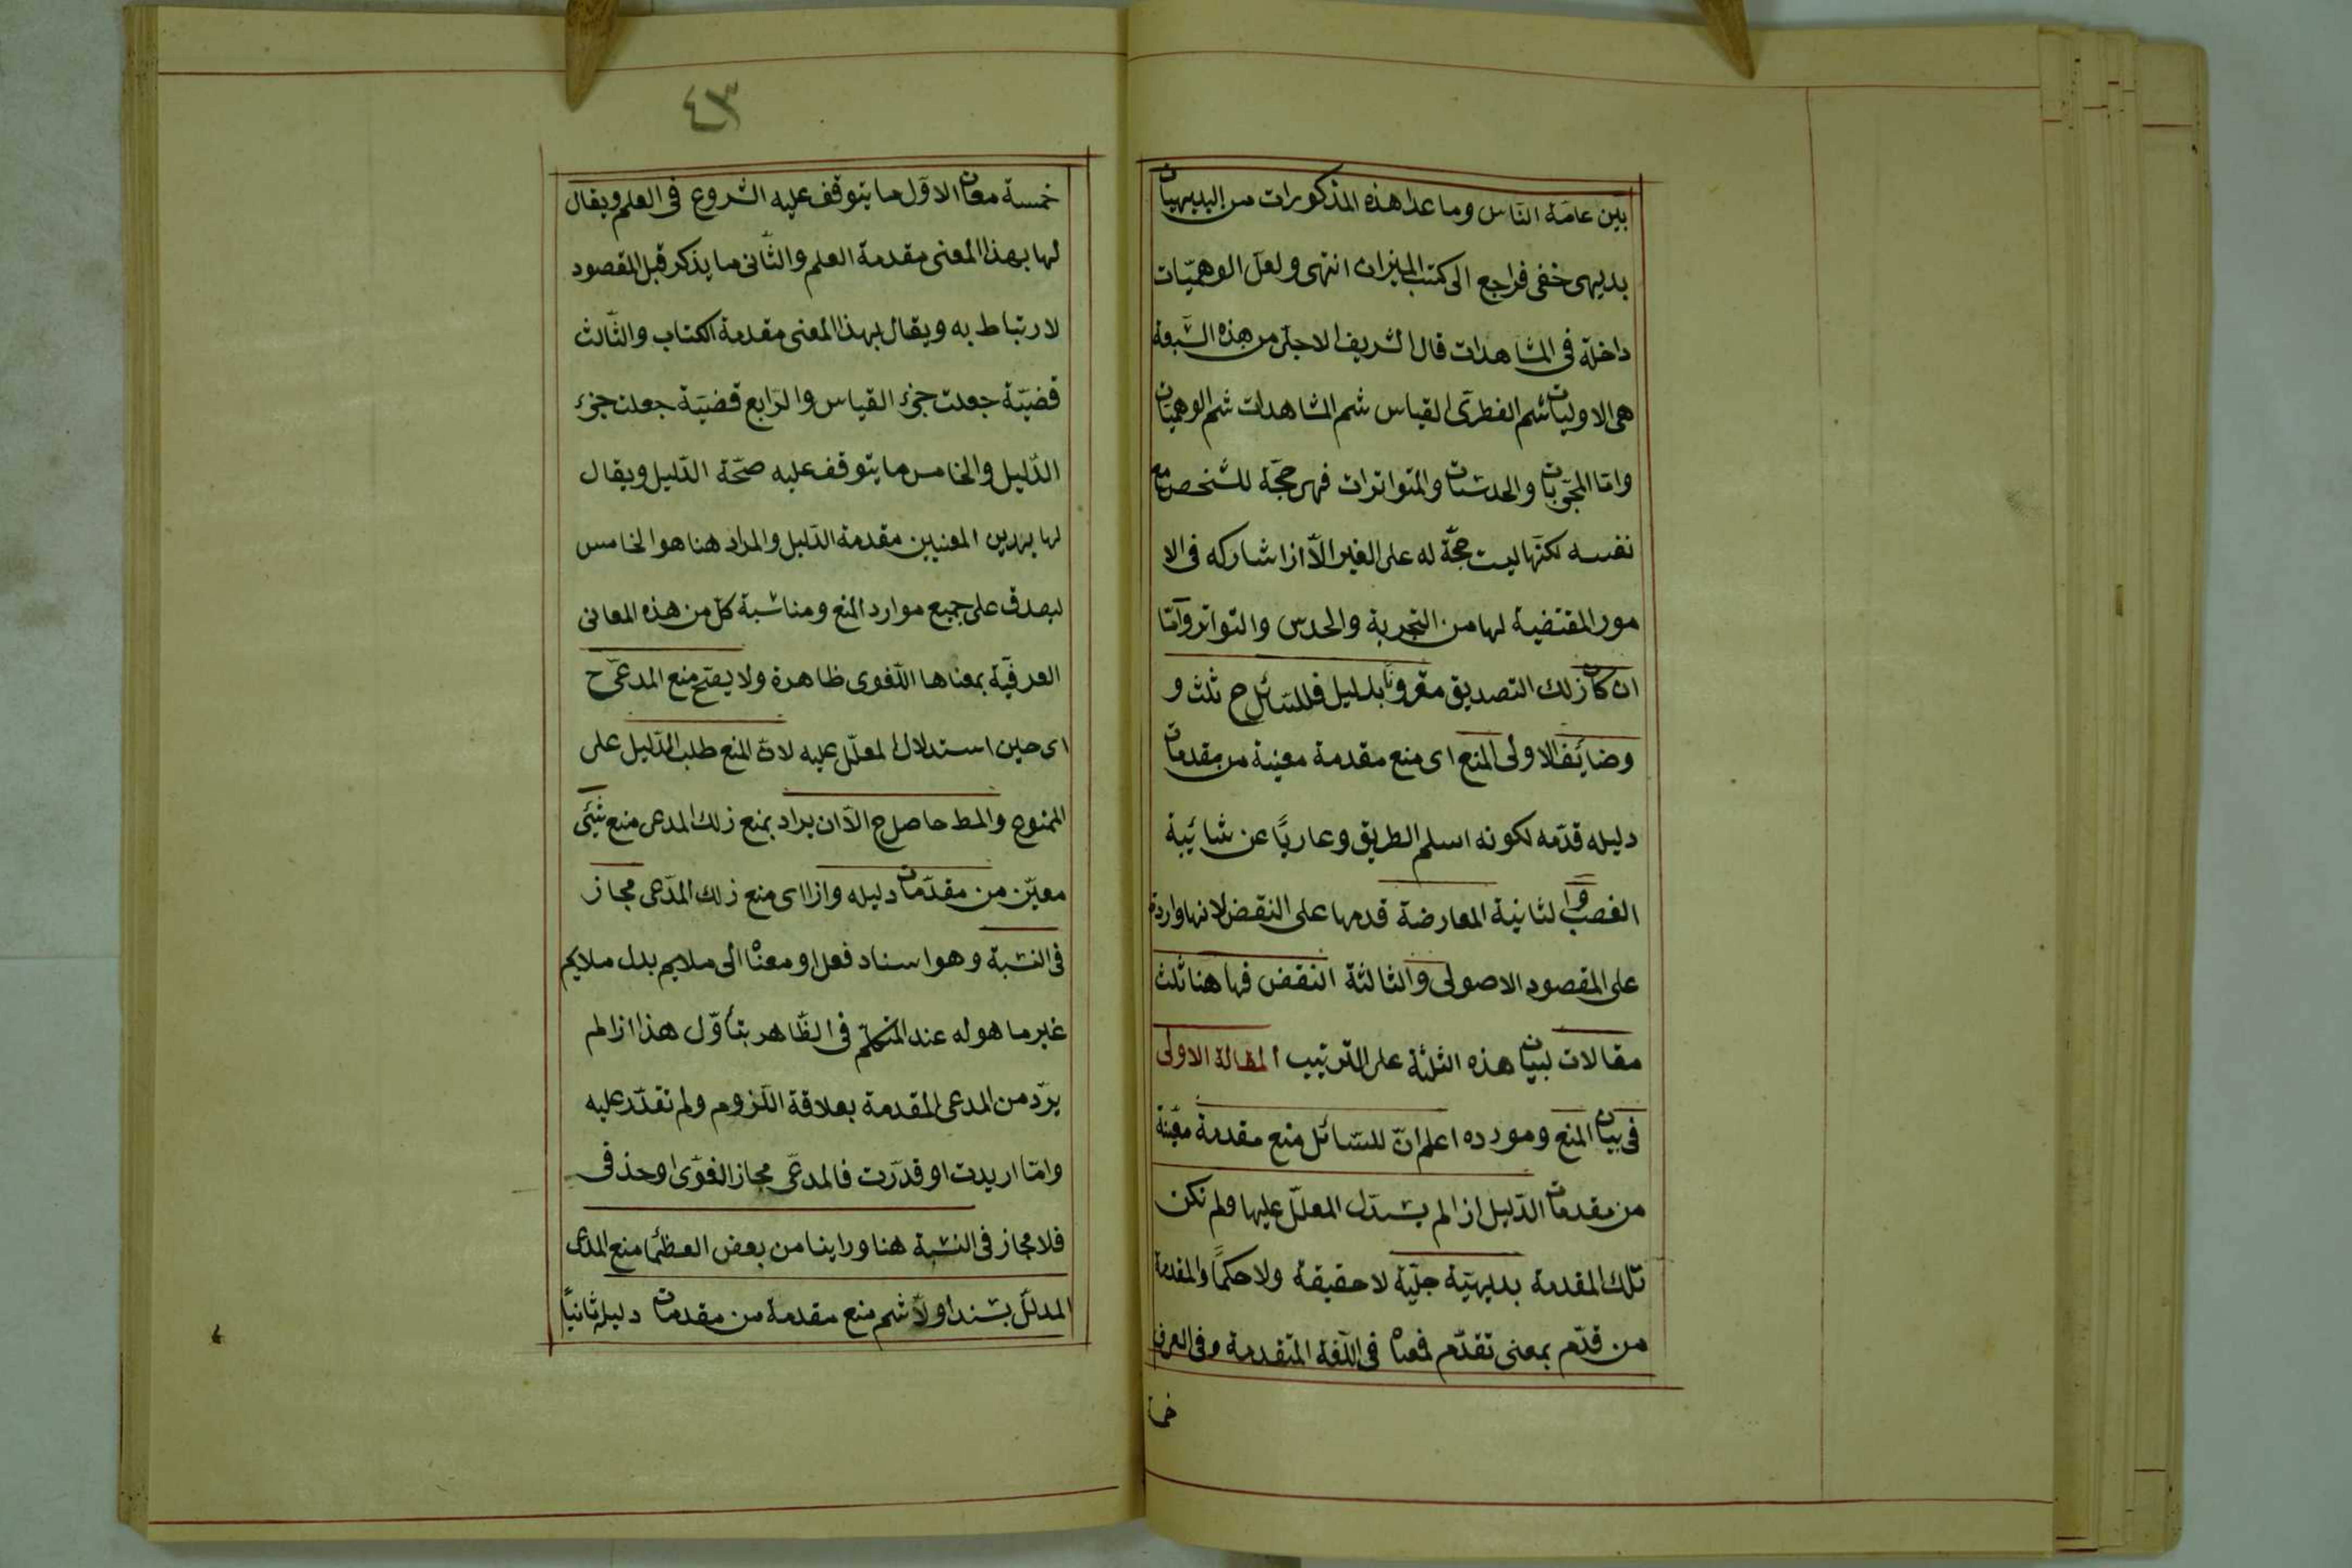 بين عامّة النّاس وما عدا هذه المذكورات من البديهيات
بديهى خفى فراجع الى كتب الميزان انتهى ولعلّ الوهميّات
داخلة فى المشاهدات قال الشريف الاجلّ من هذه السّبعة
هى الاوليات ثم الفطرىّ القياس ثم المشاهدات ثم الوهميّات
وامّا المجرّبات والحدسيّات والمتواترات فهى حجّة للشخص مع
نفسه لكنّها ليست حجّة له على الغير الّا اذا شاركه فى الا
مور المقتضية لها من التجربة والحدس والتواتر وامّا
ان كان ذلك التصديق مقرونًا بدليل فللسّائل ح ثلث و
وضائف الاولى المنع اى منع مقدمة معيّنة من مقدمات
دليله قدّمه لكونه اسلم الطريق وعاريًا عن شائبة
الغصب والثانية المعارضة قدمها على النقض لانها واردة
على المقصود الاصولى والثالثة النقض فها هنا ثلث
مقالات لبيان هذه الثلثة على الترتيب المقالة الاولى
فى بيان المنع ومورده اعلم انّ للسّائل منع مقدمة معيّنة
من مقدمات الدّليل اذا لم يستدلّ المعلّل عليها ولم تكن
تلك المقدمة بديهيّة جليّة لا حقيقة ولا حكمًا والمقدمة
من قدّم بمعنى تقدّم فمعناه فى اللّغة المتقدمة وفى العرف
خمسة
٤٣
خمسة معان الاوّل ما يتوقف عليه الشروع فى العلم ويقال
لها بهذا المعنى مقدمة العلم والثّانى ما يذكر قبل المقصود
لارتباط به ويقال بهذا المعنى مقدمة الكتاب والثّالث
قضيّة جعلت جزء القياس والرّابع قضيّة جعلت جزء
الدّليل والخامس ما يتوقف عليه صحّة الدّليل ويقال
لها بهذين المعنيين مقدمة الدّليل والمراد هنا هو الخامس
ليصدق على جميع موارد المنع ومناسبة كلّ من هذه المعانى
العرفيّة بمعناها اللّغوى ظاهرة ولا يصحّ منع المدعىّ ح
اى حين استدلال المعلّل عليه لانّ المنع طلب الدّليل على
الممنوع والمط حاصل ح الّا ان يراد بمنع ذلك المدعى منع شيئى
معيّن من مقدّمات دليله واذا اى منع ذلك المدّعى مجاز
فى النسبة وهو اسناد فعل او معناه الى ملايم بدل ملايم
غير ما هو له عند المتكلّم فى الظّاهر بتأوّل هذا اذا لم
يرد من المدعى المقدمة بعلاقة اللّزوم ولم تقدّر عليه
وامّا اريدت او قدّرت فالمدعّى مجاز لغوّى او حذفى
فلا مجاز فى النسبة هنا وراينا من بعض العظما منع المدعى
المدلّل بسند اولًا ثم منع مقدمة من مقدمات دليله ثانيًا